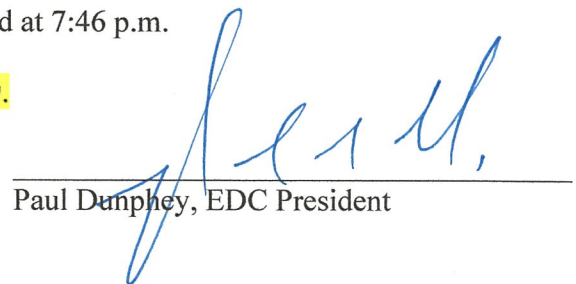 d at 7:46 p.m.
.
Paul Dunphey, EDC President